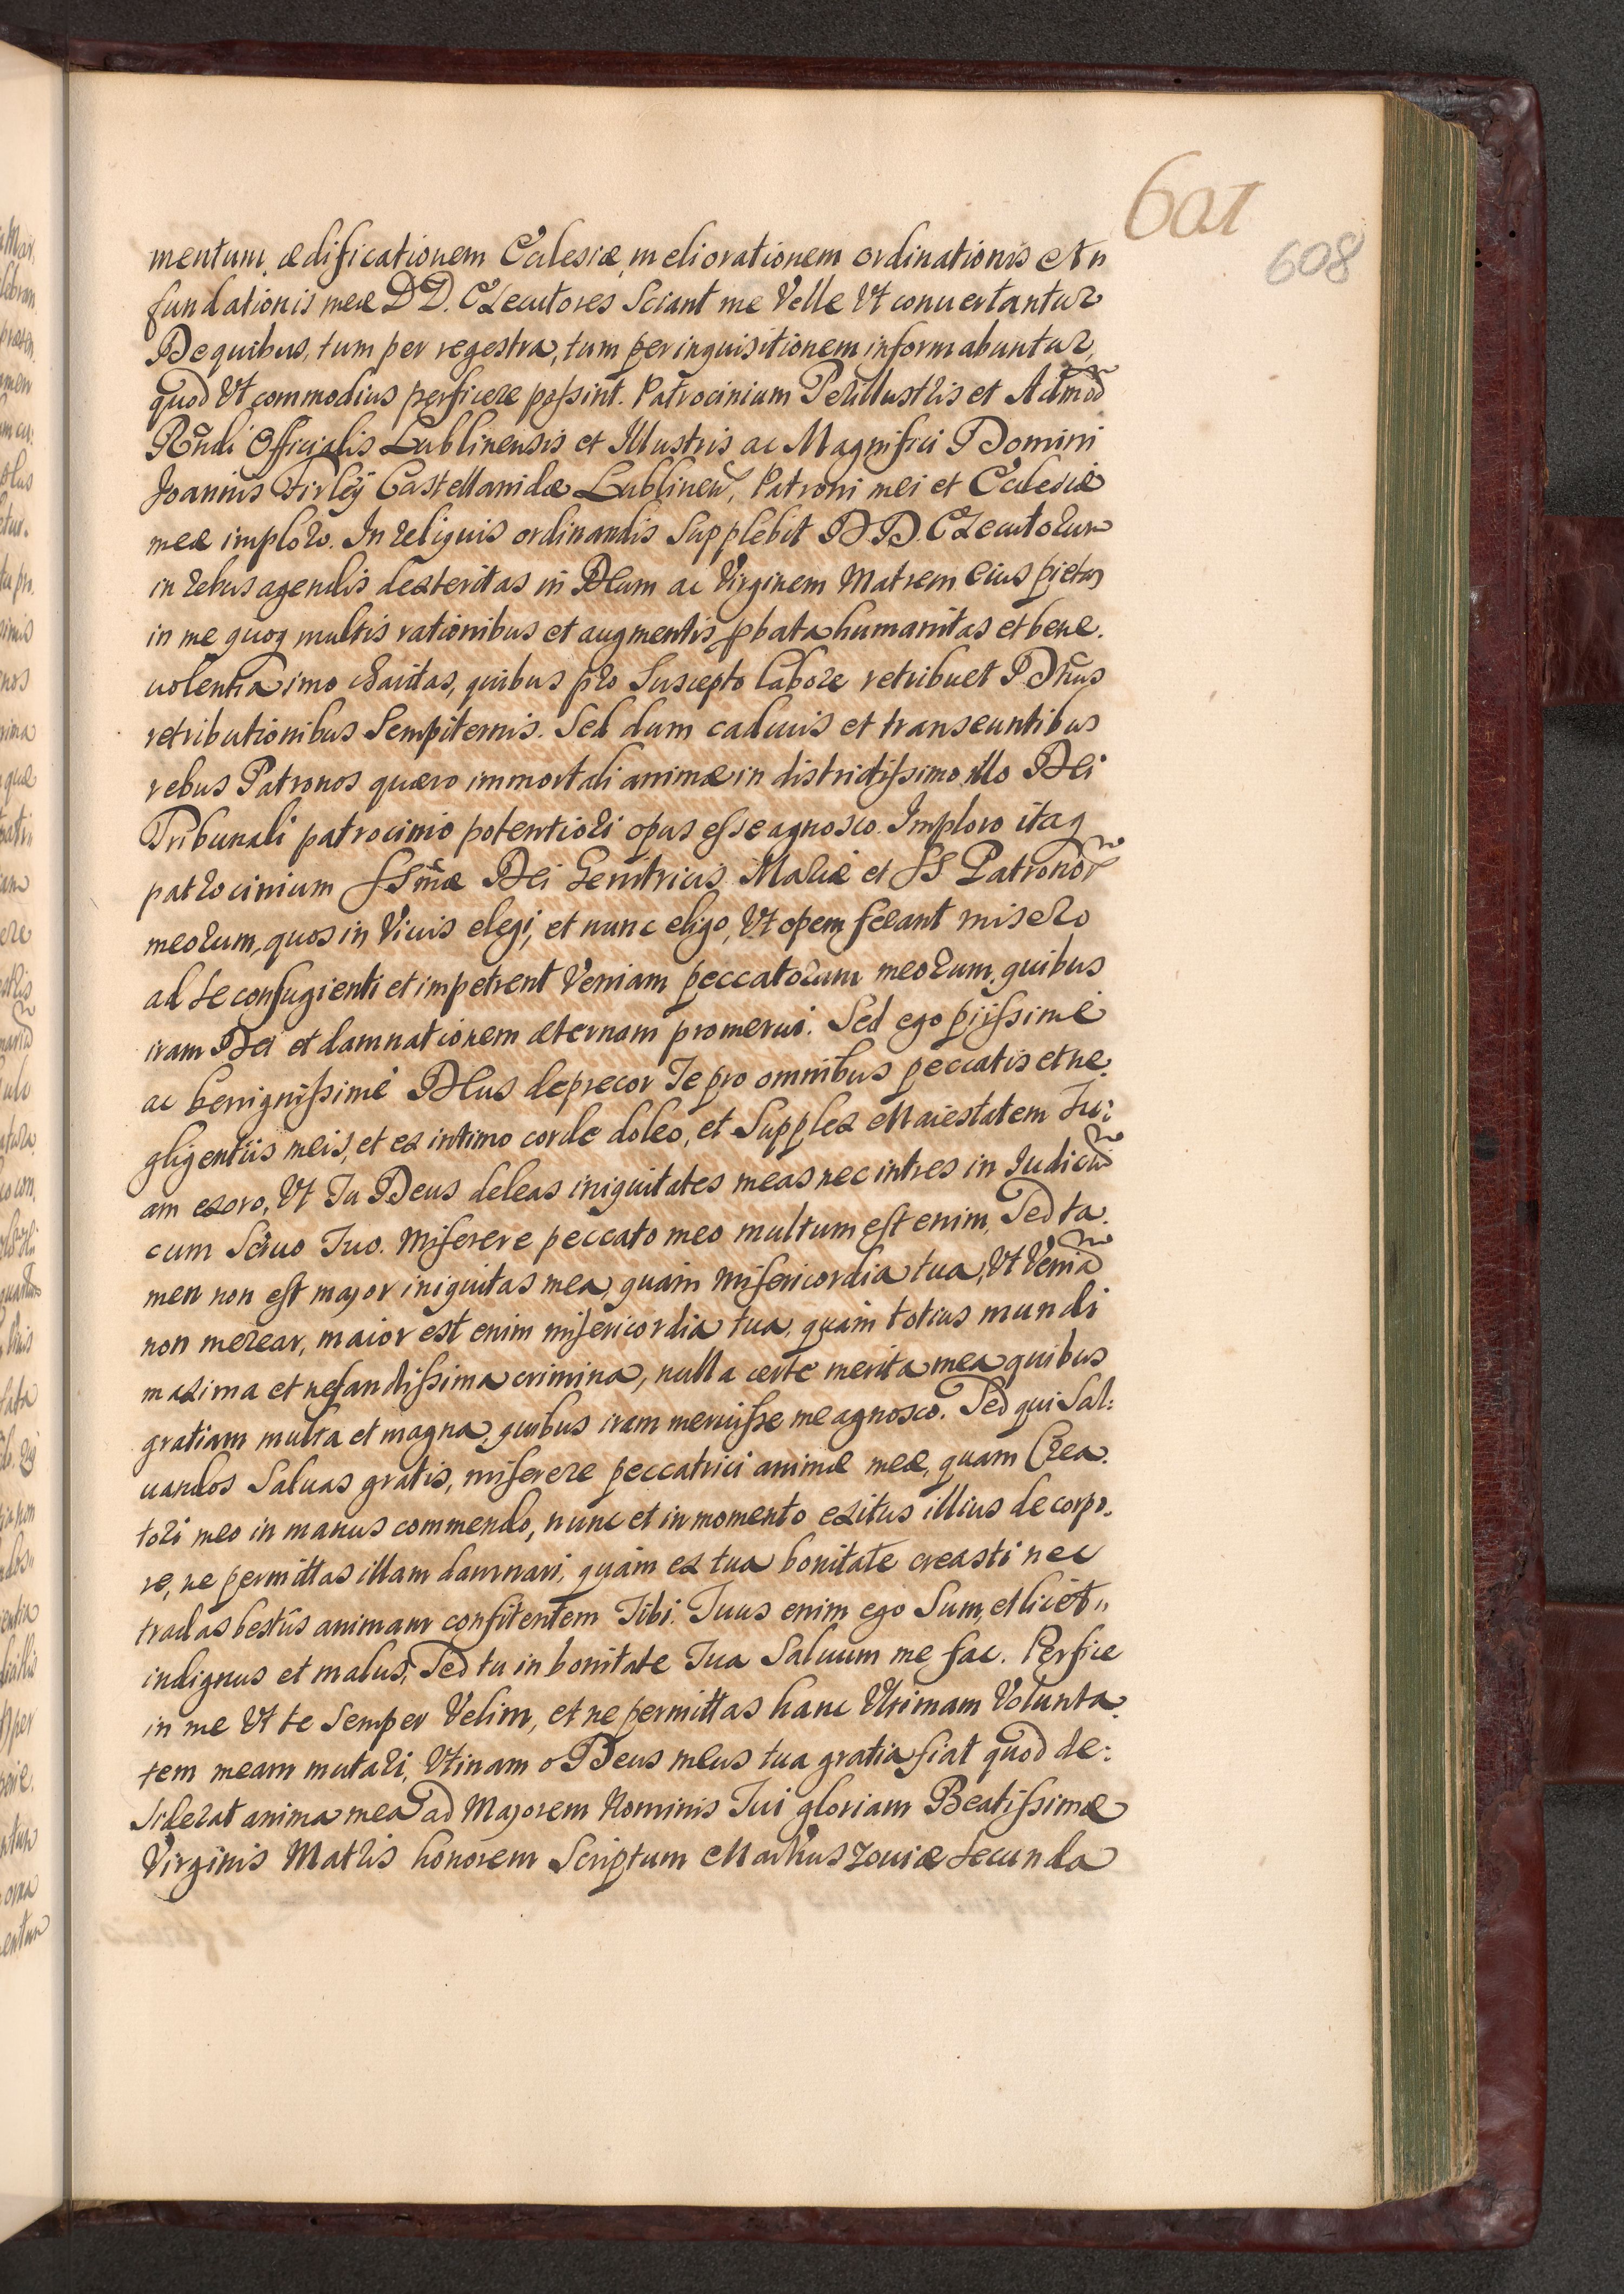 601
608
mentum, ædificationem Ecclesiæ, meliorationem ordinationis et
fundationis meæ DD. Executores Sciant me Velle Vt conuertantur
De quibus, tum per regestra, tum per inquisitionem informabuntur,
quod Vt commodius perficere possint. Patrocinium Perillustris et Admod
Rndi Officialis Lublinensis et Illustris ac Magnifici Domini
Joannis Firley Castellanidæ Lublinen, Patroni mei et Ecclesiæ
meæ imploro. In reliquis ordinandis Supplebit DD. Executorum
in rebus agendis dexteritas in Deum ac Virginem Matrem eius pietas
in me quoq multis rationibus et augmentis pbata humanitas et bene.
uolentia imo charitas, quibus pro Suscepto labore retribuet Dnus
retributionibus Sempiternis. Sed dum caducis et transeuntibus
rebus Patronos quæro immortali animæ in districtissimo illo Dei
Tribunali patrocinio potentiori opus esse agnosco. Imploro itaq
patrocinium SSmæ Dei Genitricis Mariæ et SS Patronor
meorum, quos in Viuis elegi, et nunc eligo, Vt opem ferant misero
ad se confugienti et impetrent Veniam peccatorum meorum, quibus
iram Dei et damnationem æternam promerui. Sed ego pijssime
ac benignissime Deus deprecor Te pro omnibus peccatis et ne.
gligentiis meis, et ex intimo corde doleo, et Supplex Maiestatem Tu:
am exoro, Vt Tu Deus deleas iniquitates meas nec intres in Judiciū
cum Seruo Tuo. Miserere peccato meo multum est enim, Sed ta.
men non est major iniquitas mea, quam misericordia tua, Vt Veniā
non merear, maior est enim misericordia tua, quam totius mundi
maxima et nefandissima crimina, nulla certe merita mea quibus
gratiam multa et magna, quibus iram meruisse me agnosco. Sed qui Sal:
uandos Saluas gratis, miserere peccatrici animæ meæ, quam Crea.
tori meo in manus commendo, nunc et in momento exitus illius de corpo.
re, ne permittas illam damnari, quam ex tua bonitate creasti nec
tradas bestiis animam confitentem Tibi. Tuus enim ego Sum, et licet„
indignus et malus, Sed tu in bonitate Tua Saluum me fac. Perfice
in me Vt te Semper Velim, et ne permittas hanc Vltimam Volunta.
tem meam mutari, Vtinam o Deus meus tua gratia fiat quod de:
siderat anima mea ad Majorem Nominis Tui gloriam Beatissimæ
Virginis Matris honorem Scriptum Markuszouiæ Secunda